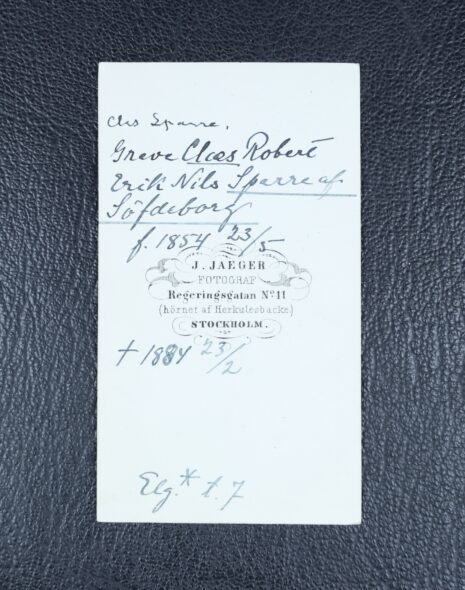 Clas Sparre.
Greve Claes Robert
Erik Nils Sparre af
Söfdeborg
f. 1854 23/5
J. JAEGER
FOTOGRAF
Regeringsgatan Nº 11
(hörnet af Herkulesbacke)
STOCKHOLM.
† 1884 23/2
Elg.* t. 7